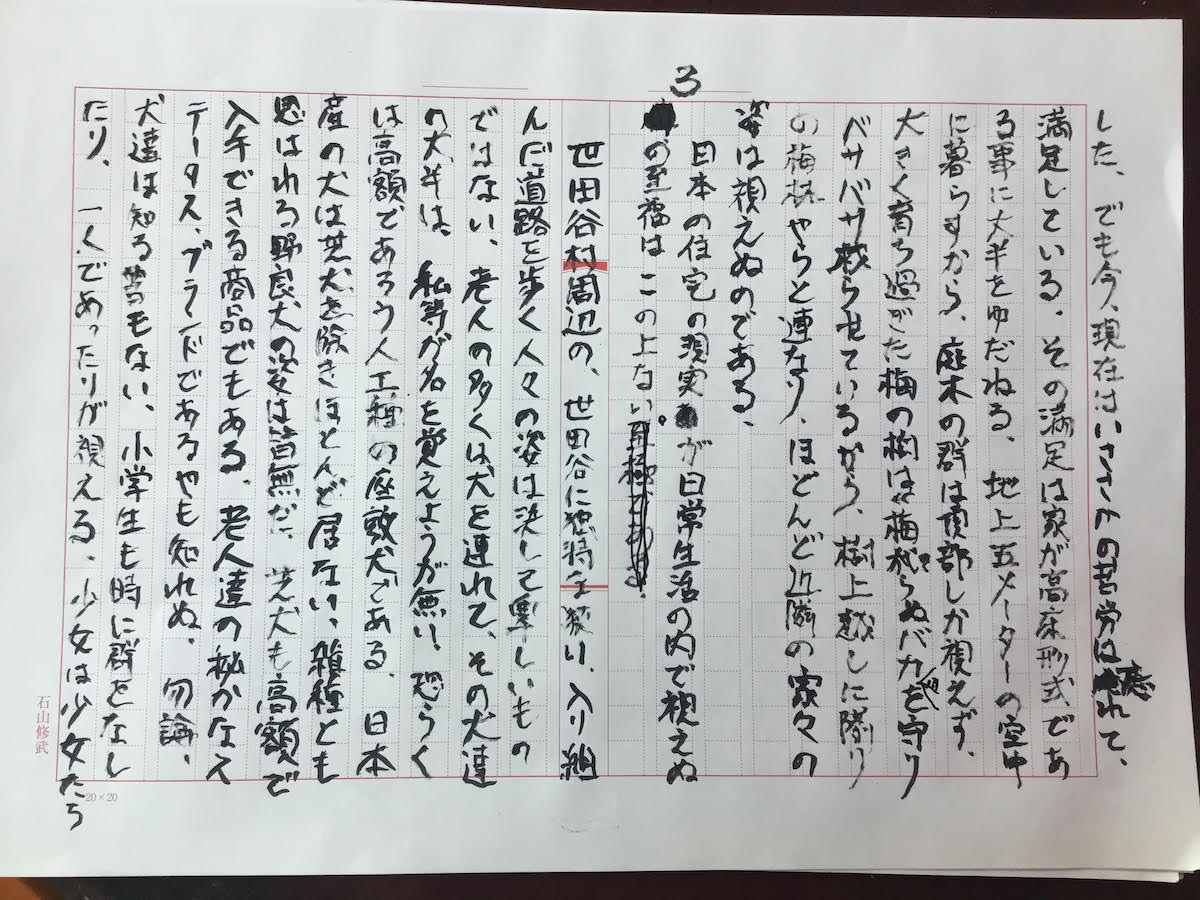 3
した、でも今、現在はいささかの苦労は忘れて、
満足している。その満足は家が高床形式であ
る事に大半をゆだねる、地上五メーターの空中
に暮らすから、庭木の群は頂部しか視えず、
大きく育ち過ぎた梅の樹は“梅切らぬバカ”を守り
バサバサ散らせているから、樹上越しに隣り
の梅林やらと連なり、ほとんど近隣の家々の
姿は視えぬのである、
日本の住宅の現実が日常生活の内で視えぬ
の至福はこの上ない
世田谷村周辺の、世田谷に独特な狭い、入り組
んだ道路を歩く人々の姿は決して美しいもの
ではない、老人の多くは犬を連れて、その犬達
の大半は、私等が名を覚えようが無い、恐らく
は高額であろう人工種の座敷犬である、日本
産の犬は芝犬を除きほとんど居ない、雑種とも
思はれる野良犬の姿は皆無だ、芝犬も高額で
入手できる商品でもある、老人達の秘かなス
テータス、ブランドであるやも知れぬ、勿論、
犬達は知る筈もない、小学生も時に群をなし
たり、一人であったりが視える、少女は少女たち
石山修武
20×20